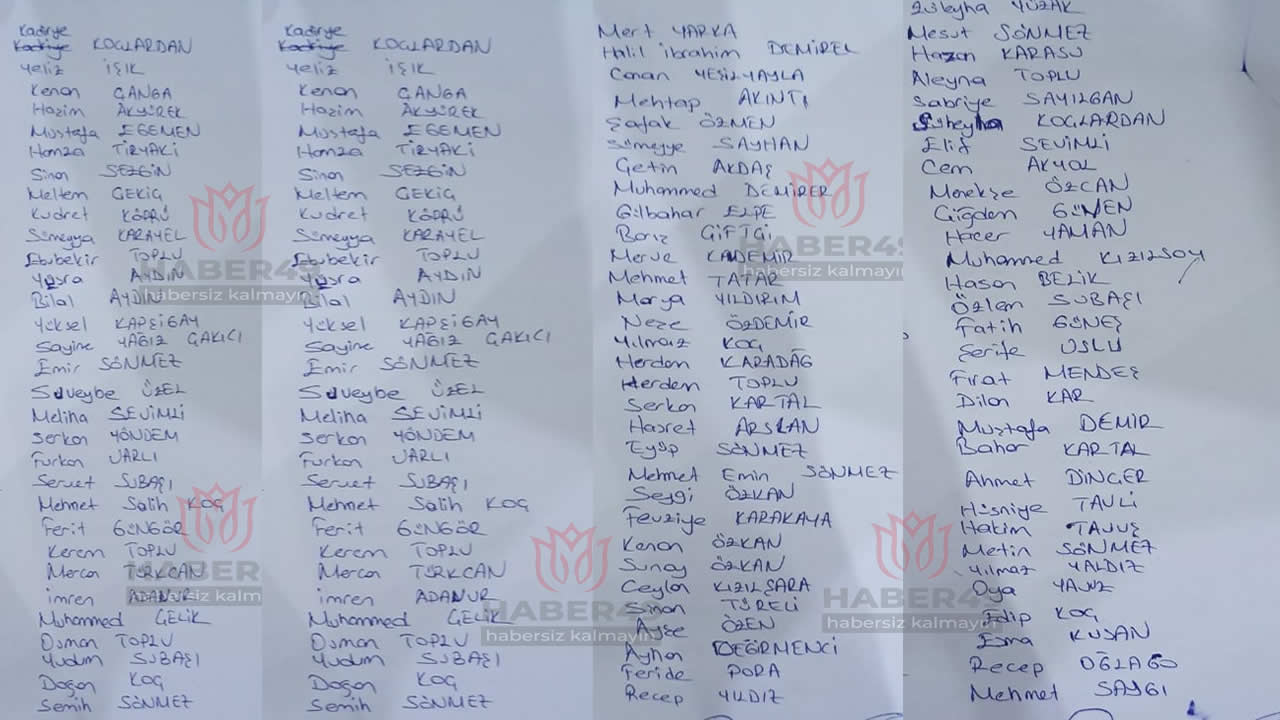 Kadriye
Kadriye KOÇLARDAN
Yeliz IŞIK
Kenan ÇANGA
Hazim AKYÜREK
Mustafa EGEMEN
Hamza TİRYAKİ
Sinan SEZGİN
Meltem ÇEKİÇ
Kudret KÖPRÜ
Sümeyya KARAYEL
Ebubekir TOPLU
Yaşra AYDIN
Bilal AYDIN
Yüksel KAPÇIGAY
Sayine YAĞIZ ÇAKICI
Emir SÖNMEZ
Suveybe ÜZEL
Meliha SEVİMLİ
Serkan YÖNDEM
Furkan VARLI
Servet SUBAŞI
Mehmet Salih KOÇ
Ferit GÜNGÖR
Kerem TOPLU
Mercan TÜRKCAN
imren ADANUR
Muhammed ÇELİK
Osman TOPLU
SUBAŞI
Doğan KOÇ
Semih SÖNMEZ
HABER49
habersiz kalmayın
HABER
habersiz kalm
Kadriye
Kadriye KOÇLARDAN
Yeliz IŞIK
Kenan ÇANGA
Hazim AKYÜREK
Mustafa EGEMEN
Hamza TİRYAKİ
Sinan SEZGİN
Meltem ÇEKİÇ
Kudret KÖPRÜ
Sümeyya KARAYEL
Ebubekir TOPLU
Yaşra AYDIN
Bilal AYDIN
Yüksel KAPÇIGAY
Sayine YAĞIZ ÇAKICI
Emir SÖNMEZ
Suveybe ÜZEL
Meliha SEVİMLİ
Serkan YÖNDEM
Furkan VARLI
Servet SUBAŞI
Mehmet Salih KOÇ
Ferit GÜNGÖR
Kerem TOPLU
Mercan TÜRKCAN
imren ADANUR
Muhammed ÇELİK
Osman TOPLU
SUBAŞI
Doğan KOÇ
Semih SÖNMEZ
HABER49
habersiz kalmayın
Mert YARKA
Halil ibrahim DEMİREL
Canan YEŞİLYAYLA
Mehtap AKINTI
Şafak ÖZMEN
Sümeyye SAYHAN
Çetin AKDAŞ
Muhammed DEMİRER
Gülbahar ELPE
Barız ÇİFTÇİ
Merve KANDEMİR
Mehmet TATAR
Marya YILDIRIM
Neze ÖZDEMİR
Yılmaz KOÇ
Herdem KARADAĞ
Herdem TOPLU
Serkan KARTAL
Hasret ARSLAN
Eyüp SÖNMEZ
Mehmet Emin SÖNMEZ
Sevgi ÖZKAN
Fevziye KARAKAYA
Kenan ÖZKAN
Sunay ÖZKAN
Ceylan KIZILŞARA
Sinan TÜRELİ
Ayşe ÖZEN
Ayhan DEĞİRMENCİ
Feride PORA
Recep YILDIZ
HABER49
habersiz kalmayın
Züleyha YÜZAK
Mesut SÖNMEZ
Hazan KARASU
Neyna TOPLU
Sabriye SAYILGAN
Süheyla KOÇLARDAN
Elif SEVİMLİ
Cem AKYOL
Menekşe ÖZCAN
Çiğdem GÜMEN
Hacer YAMAN
Muhammed KIZILSOY
Hasan BELİK
Özlem SUBAŞI
Fatih GÜNEŞ
Şerife USLU
Fırat MENDEŞ
Dilan KAR
Mustafa DEMİR
Bahar KARTAL
Ahmet DİNÇER
Hüsniye TAVLİ
Hakim TAVUŞ
Metin SÖNMEZ
Yılmaz YALDIZ
Oya YAVUZ
Edip KOÇ
Esma KUSAN
Recep
Mehmet SAYGI
HABER49
habersiz kalmayın